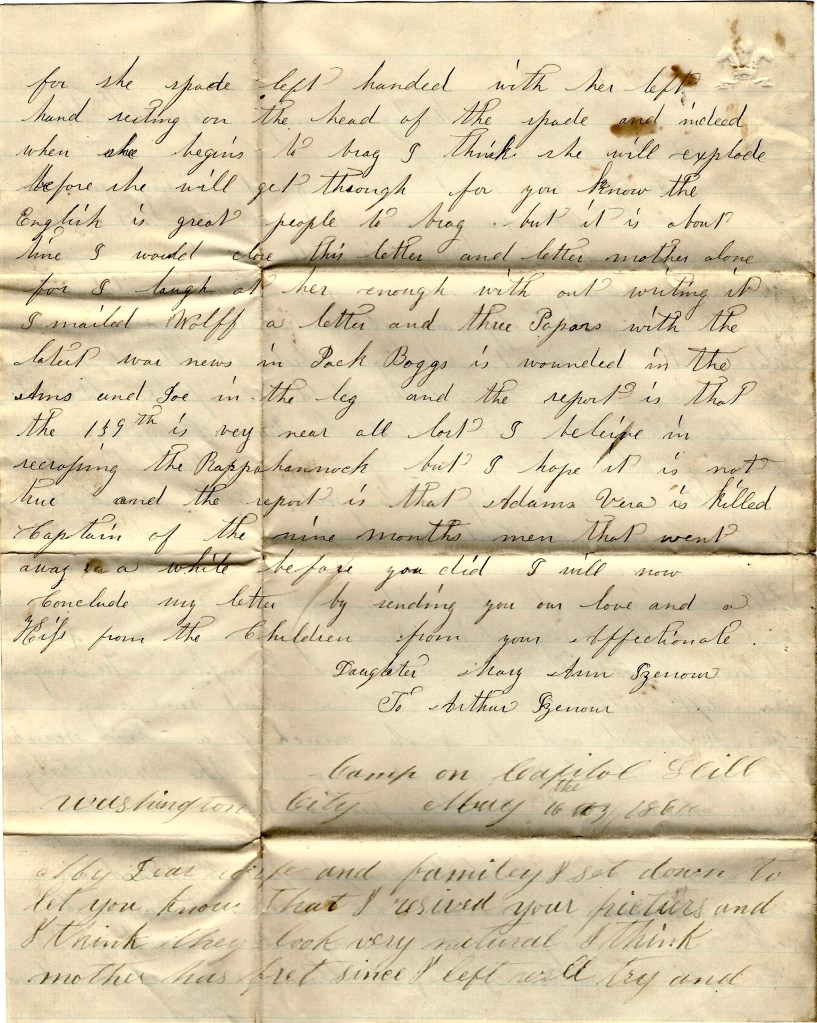 for she spade left handed with her left
hand resting on the head of the spade and indeed
when she begins to brag I think she will explode
before she will get through for you know the
English is great people to brag but it is about
time I would close this letter and letter mother alone
for I laugh at her enough with out writing it
I mailed Wolff a letter and three Papars with the
latest war news in Jack Boggs is wounded in the
Arms and Joe in the leg and the report is that
the 139th is very near all lost I beleive in
recrossing the Rappahannock but I hope it is not
true and the report is that Adams Vera is killed
Captain of the nine months men that went
away a while before you did I will now
Conclude my letter by sending you our love and a
Kiss from the Children from your Affectionate
Daughter Mary Ann Izenour
To Arthur Izenour
Camp on Capitol Hill
Washington City May 16 the
My Dear wife and familey I set down to
let you know that I resived your picturs and
I think they look very natural I think
mother has fret since I left well try and